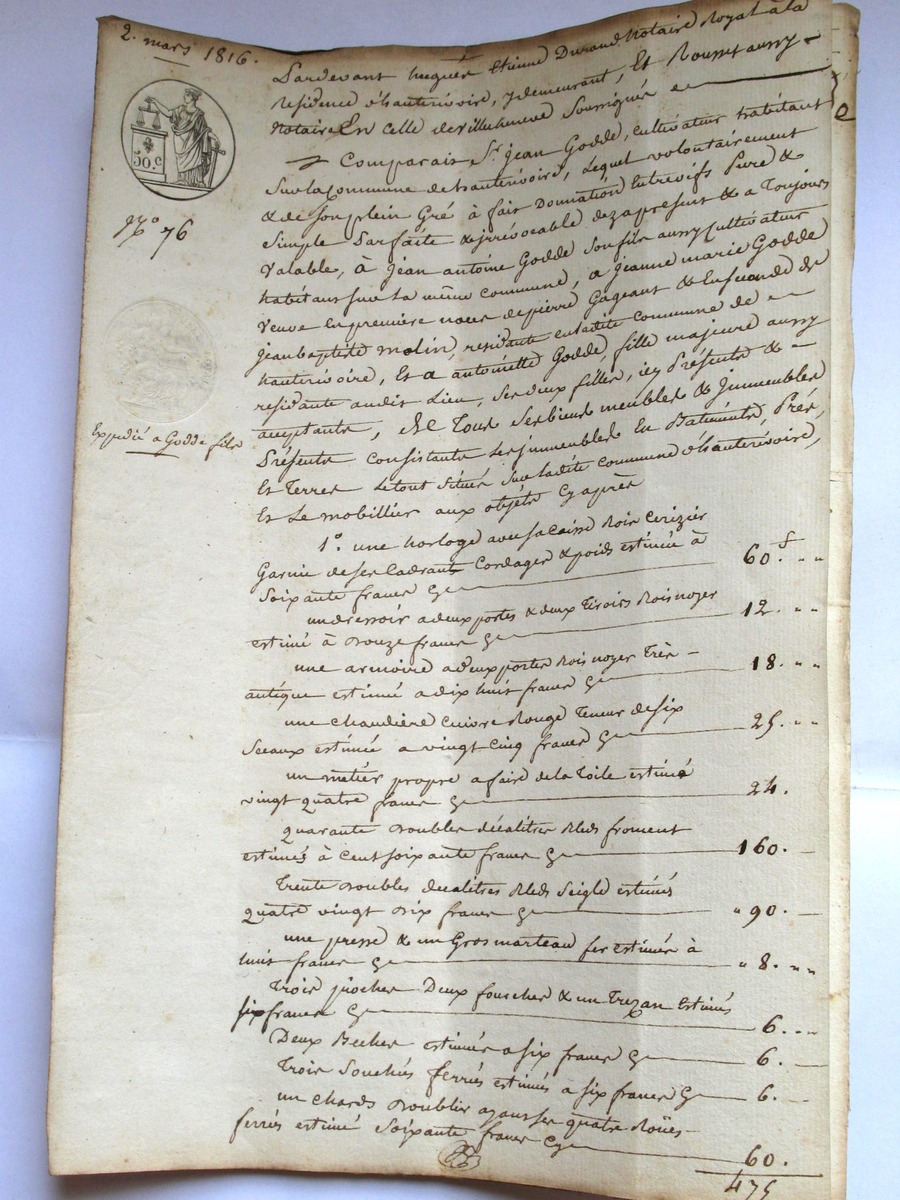 2. mars 1816.
50. C
N.º 76
Expedié a Godde fils
Pardevant hugues Etienne Durand Notaire Royal à la
residence d'hauterivoire, y demeurant, Et Rousset aussy
Notaire En celle de villecheneve Soussignés
Comparait S.r jean Godde, cultivateur habitant
Sur la commune de hauterivoire, Lequel volontairement
& de son plein Gré à fait Donnation Entrevifs Pure &
Simple Parfaite & irrévocable dezapresent & a Toujours
valable, à jean antoine Godde Son fils aussy Cultivateur
habitant sur la même commune, a jeanne marie Godde
veuve en première noces de pierre Gageant & En seconde de
jean baptiste molin, residante en ladite commune de
hauterivoire, Et a antoinette Godde, fille majeure aussy
residante audit Lieu, Ses deux filles, icy Présents &
acceptants, De Tous Ses biens meubles & immeubles
Présents Consistants Les immeubles En Batiments, Prés,
Et Terres Le tout Situés Sur ladite commune d'hauterivoire,
Et Le mobillier aux objéts Cyaprès
1.º une horloge avec sa Caisse Bois Cerizier
Garnie de ses Cadrants Cordages & poids estimée à
Soixante francs Cy 60.f " "
un dressoir a deux portes & deux Tiroirs Bois noyer
estimé à Douze francs Cy 12. " "
une armoire a deux portes Bois noyer Très
antique estimée a dix huit francs Cy 18. " "
une chaudière Cuivre Rouge Teneur de six
Sceaux estimée a vingt Cinq francs Cy 25. " "
un métier propre a fair de la Toile estimé
vingt quatre francs Cy 24.
quarante doubles décalitres Bled froment
estimés à Cent soixante francs Cy 160.
Trente doubles decalitres Bled Seigle estimés
quatre vingt dix francs Cy " 90.
une presse & un Gros marteau fer estimés à
huit francs Cy " 8. " "
Trois pioches Deux fourches & un Trezan Estimés
six francs Cy 6. " "
Deux Beches estimées a six francs Cy 6.
Trois Souchés ferrés estimés a six francs Cy 6.
un chards a quatre Roües
ferrés estimé Soixante francs Cy 60.
475